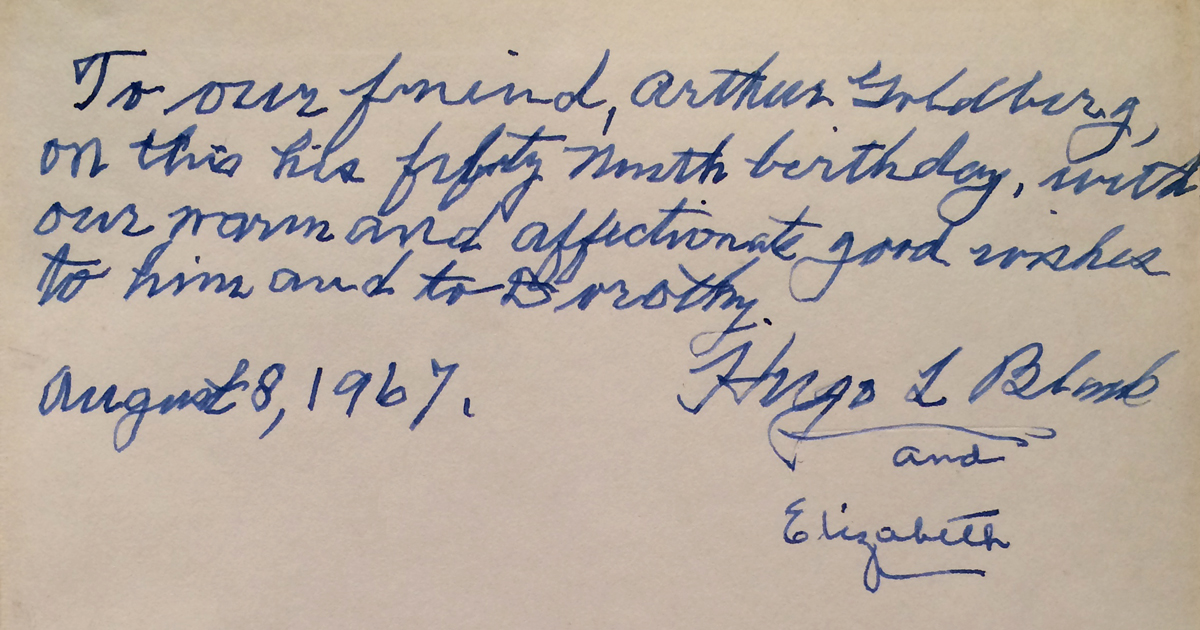 To our friend, Arthur Goldberg,
on this his fifty ninth birthday, with
our warm and affectionate good wishes
to him and to Dorothy.
August 8, 1967.
Hugo L Black
and
Elizabeth